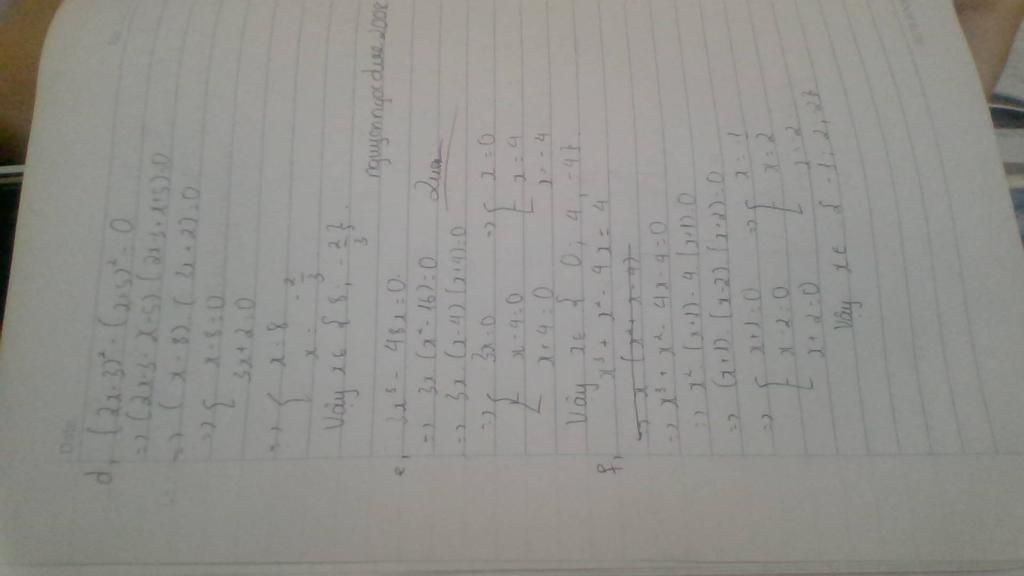 Date
d, (2x-3)² - (x+5)² = 0
=> (2x-3-x-5)(2x-3+x+5)=0
=> (x-8)(3x+2)=0
=> [ x-8=0
3x+2=0
=> [ x=8
x=-2/3
Vậy x ∈ { 8, -2/3 }.
nguyenngocduc2008
e, 3x³ - 48x = 0.
=> 3x(x²-16)=0
=> 3x(x-4)(x+4)=0
=> [ 3x=0 => [ x=0
x-4=0 x=4
x+4=0 x=-4
Vậy x ∈ { 0, 4, -4 }.
f, x³ + x² - 4x = 4
=> x³ + x² - 4x - 4 = 0
=> x²(x+1) - 4(x+1)=0
=> (x+1)(x-2)(x+2)=0
=> [ x+1=0 => [ x=-1
x-2=0 x=2
x+2=0 x=-2
Vậy x ∈ { -1, 2, -2 }